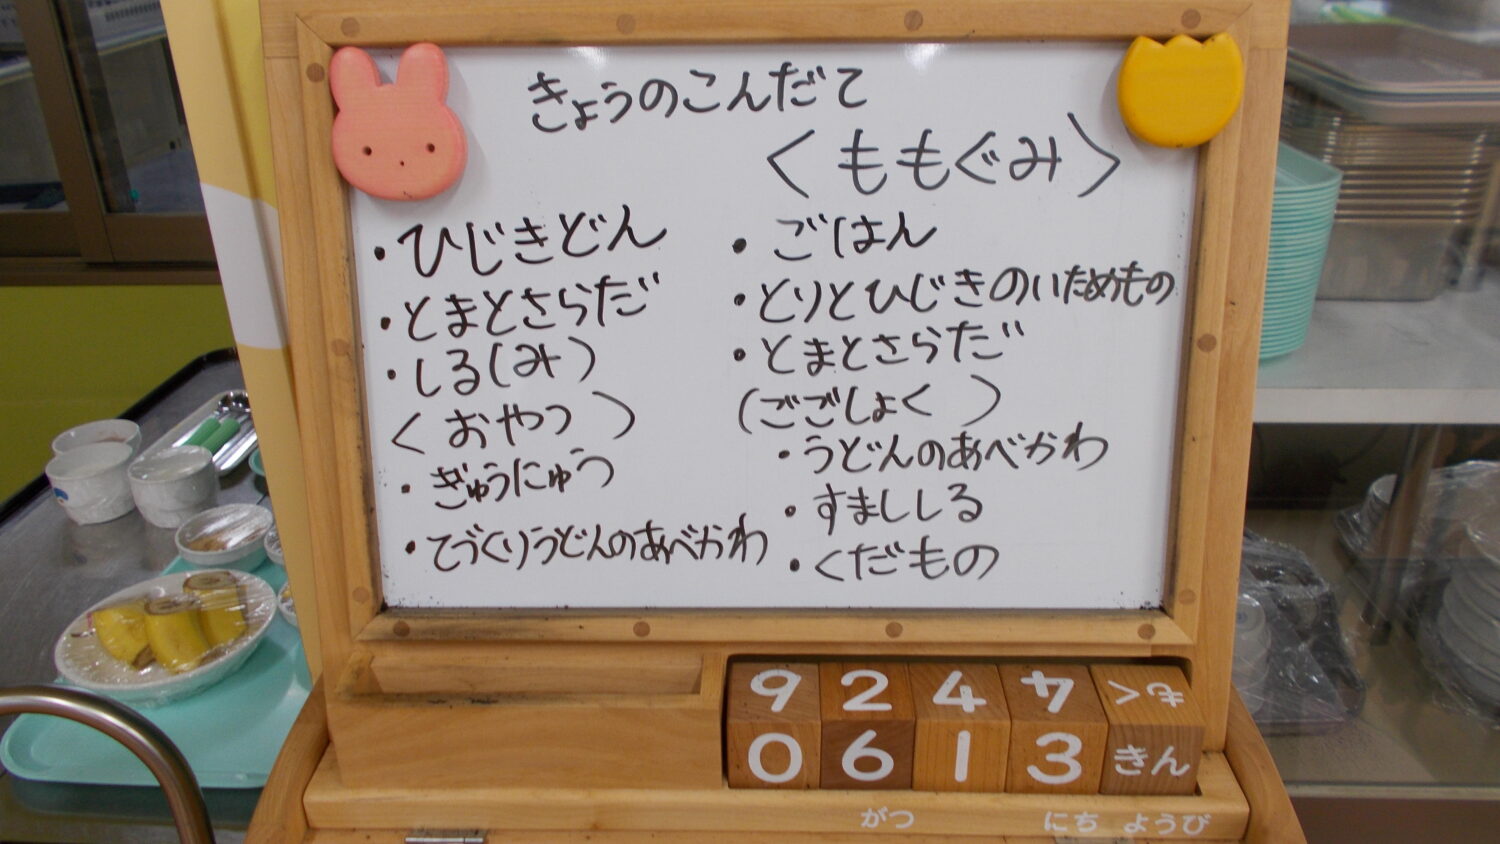 きょうのこんだて
<ももぐみ>
・ひじきどん
・とまとさらだ
・しる(み)
<おやつ>
・ぎゅうにゅう
・てづくりうどんのあべかわ
・ごはん
・とりとひじきのいためもの
・とまとさらだ
(ごごしょく)
・うどんのあべかわ
・すまししる
・くだもの
9 2 4 4 もく
0 6 1 3 きん
がつ にち ようび